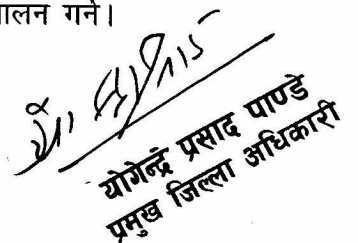 ालन गर्ने।
योगेन्द्र प्रसाद पाण्डे
प्रमुख जिल्ला अधिकारी